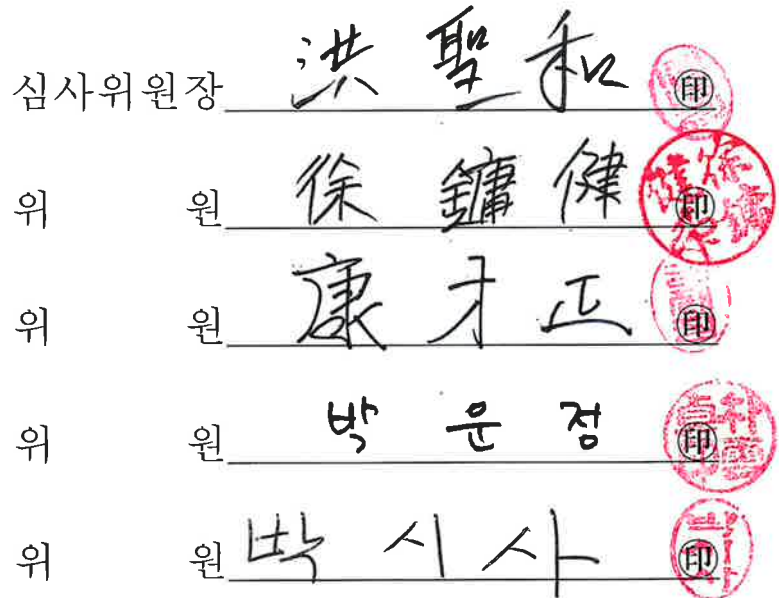 심사위원장 洪 聖 和 印
위 원 徐 鏞 健 印
위 원 康 才 正 印
위 원 박 운 점 印
위 원 박 시 사 印